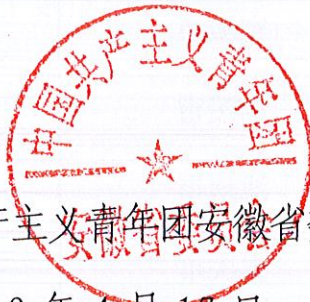 中国共产主义青年团
安徽省委员会
主义青年团安徽省
年 4 月 17 日